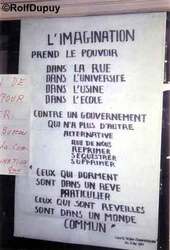 ©RolfDupuy
L'IMAGINATION
PREND LE POUVOIR
DANS LA RUE
DANS L'UNIVERSITÉ
DANS L'USINE
DANS L'ECOLE
CONTRE UN GOUVERNEMENT
QUI N'A PLUS D'AUTRE
ALTERNATIVE
QUE DE NOUS
REPRIMER
SEQUESTRER
SUPPRIMER
"CEUX QUI DORMENT
SONT DANS UN REVE
PARTICULIER
CEUX QUI SONT REVEILLES
SONT DANS UN MONDE
COMMUN"